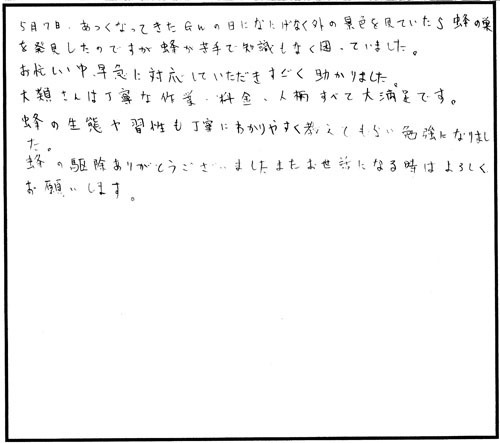 5月7日、あつくなってきたGWの日になにげなく外の景色を見ていたら蜂の巣
を発見したのですが蜂が苦手で知識もなく困っていました。
お忙しい中、早急に対応していただきすごく助かりました。
大類さんは丁寧な作業、料金、人柄すべて大満足です。
蜂の生態や習性も丁寧にわかりやすく教えてもらい勉強になりまし
た。
蜂の駆除ありがとうございましたまたお世話になる時はよろしく
お願いします。